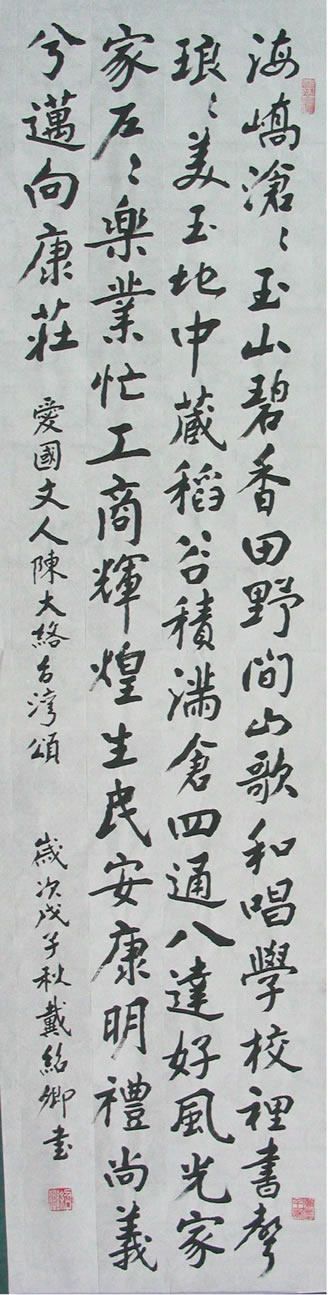 海嶠滄〻玉山碧香田野間山歌和唱學校裡書聲
琅〻美玉地中藏稻谷積滿倉四通八達好風光家
家户〻樂業忙工商輝煌生民安康明禮尚義
兮邁向康莊 愛國文人陳大絡台灣頌 歲次戊子秋戴紹卿書